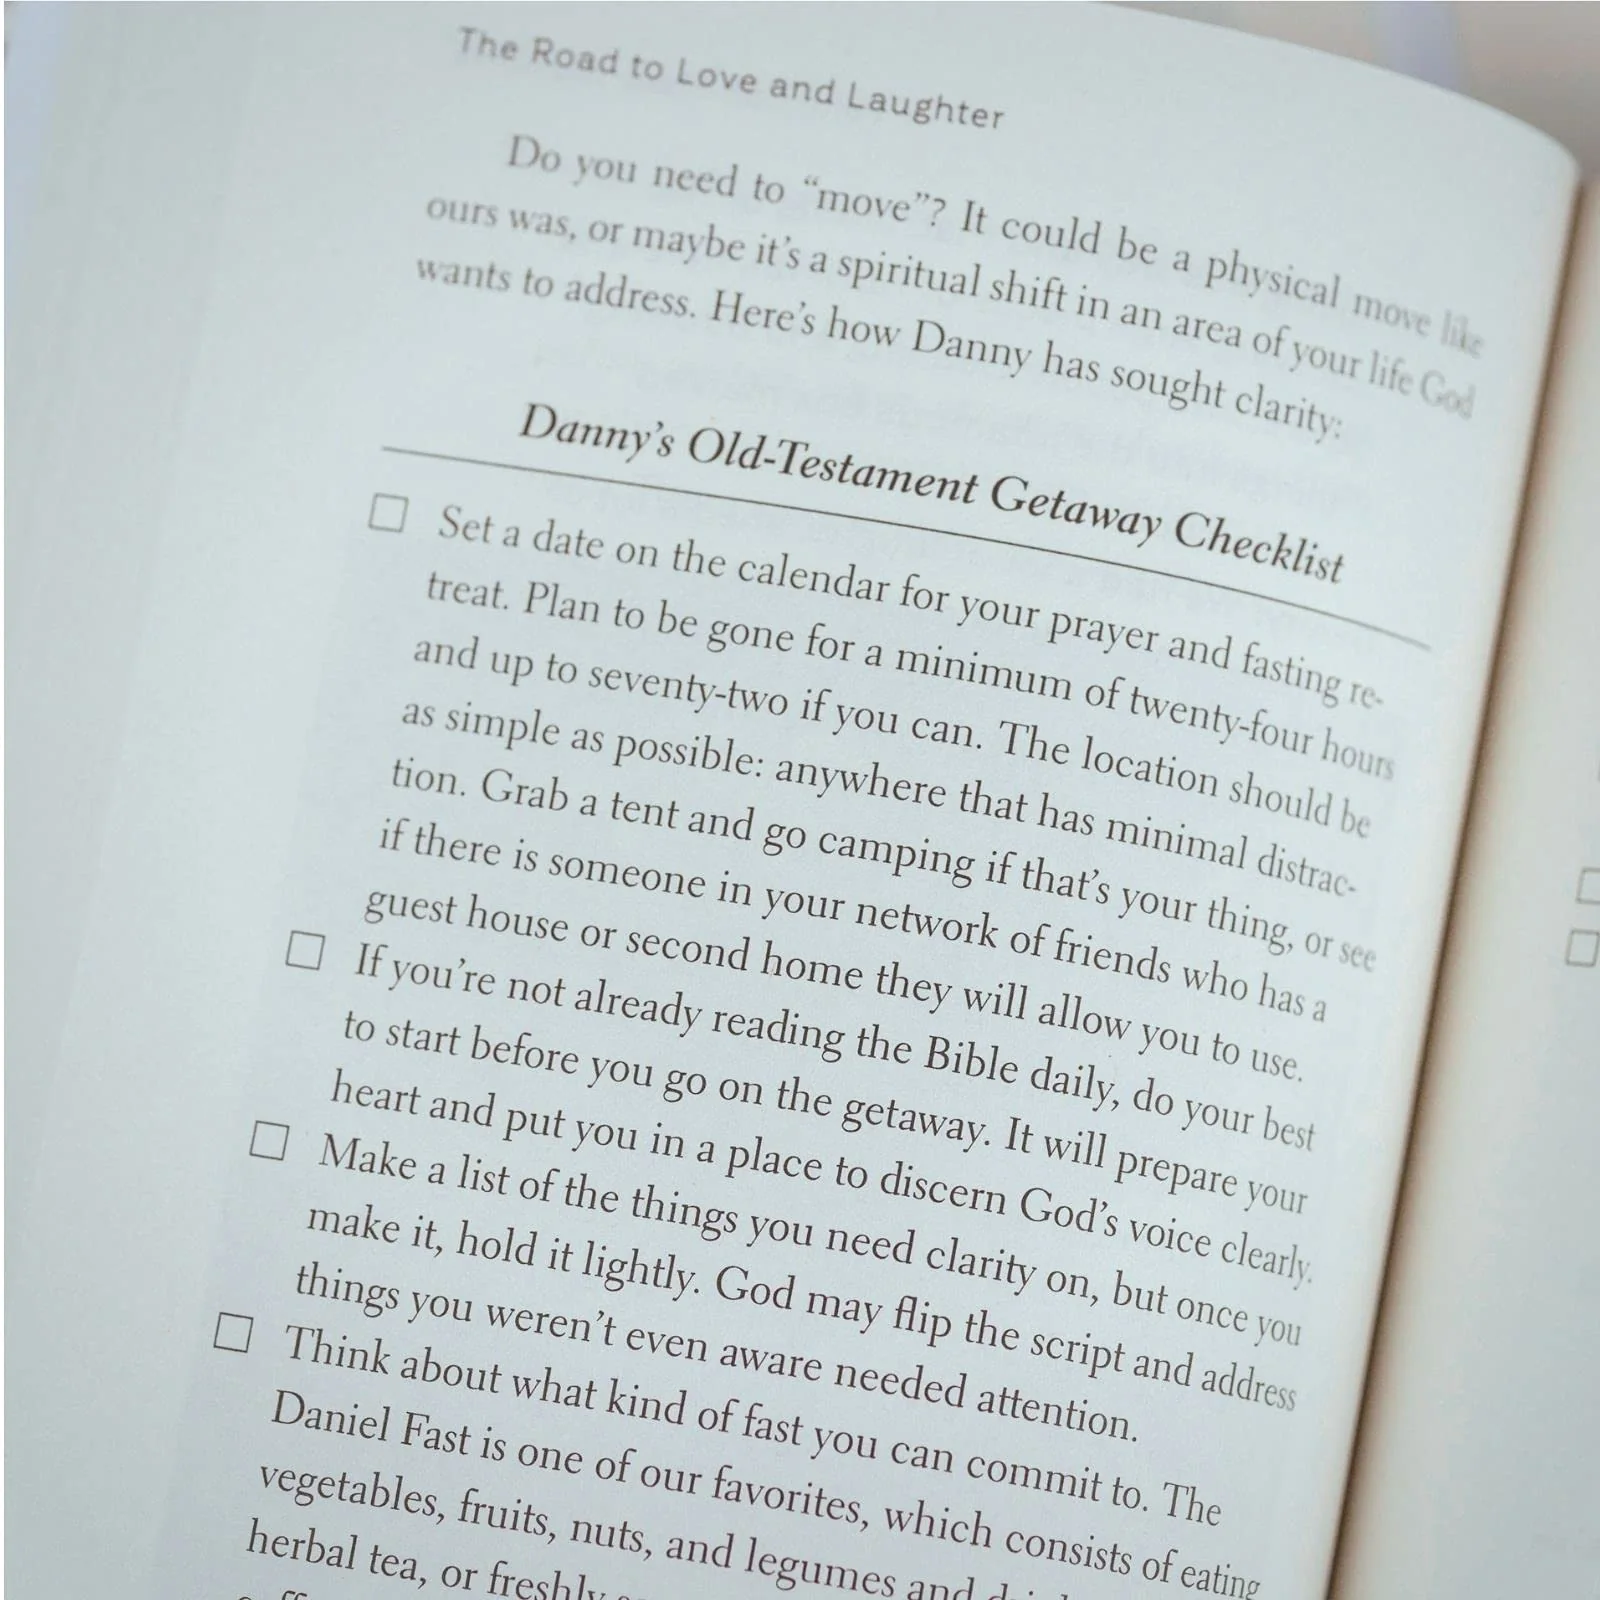 The Road to Love and Laughter
Do you need to “move”? It could be a physical move like
ours was, or maybe it’s a spiritual shift in an area of your life God
wants to address. Here’s how Danny has sought clarity:
Danny’s Old-Testament Getaway Checklist
☐ Set a date on the calendar for your prayer and fasting re-
treat. Plan to be gone for a minimum of twenty-four hours
and up to seventy-two if you can. The location should be
as simple as possible: anywhere that has minimal distrac-
tion. Grab a tent and go camping if that’s your thing, or see
if there is someone in your network of friends who has a
guest house or second home they will allow you to use.
☐ If you’re not already reading the Bible daily, do your best
to start before you go on the getaway. It will prepare your
heart and put you in a place to discern God’s voice clearly.
☐ Make a list of the things you need clarity on, but once you
make it, hold it lightly. God may flip the script and address
things you weren’t even aware needed attention.
☐ Think about what kind of fast you can commit to. The
Daniel Fast is one of our favorites, which consists of eating
vegetables, fruits, nuts, and legumes and
herbal tea, or freshly